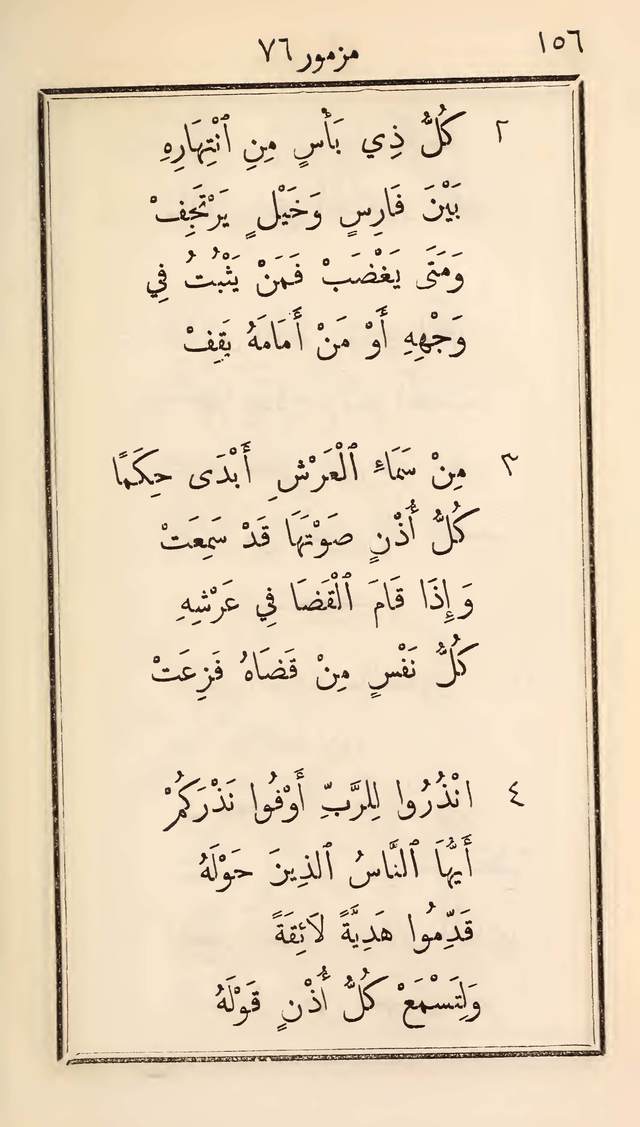 ١٥٦ مزمور ٧٦
٢ كُلُّ ذِي بَأْسٍ مِنِ ٱنْتِهَارِهِ
بَيْنَ فَارِسٍ وَخَيْلٍ يَرْتَجِفْ
وَمَتَى يَغْضَبْ فَمَنْ يَثْبُتُ فِي
وَجْهِهِ أَوْ مَنْ أَمَامَهُ يَقِفْ
٣ مِنْ سَمَاءِ ٱلْعَرْشِ أَبْدَى حِكَمًا
كُلُّ أُذْنٍ صَوْتَهَا قَدْ سَمِعَتْ
وَإِذَا قَامَ ٱلْقَضَا فِي عَرْشِهِ
كُلُّ نَفْسٍ مِنْ قَضَاهُ فَزِعَتْ
٤ انْذُرُوا لِلرَّبِّ أَوْفُوا نَذْرَكُمْ
أَيُّهَا ٱلنَّاسُ ٱلذِينَ حَوْلَهُ
قَدِّمُوا هَدِيَّةً لاَئِقَةً
وَلِتَسْمَعْ كُلُّ أُذْنٍ قَوْلَهُ